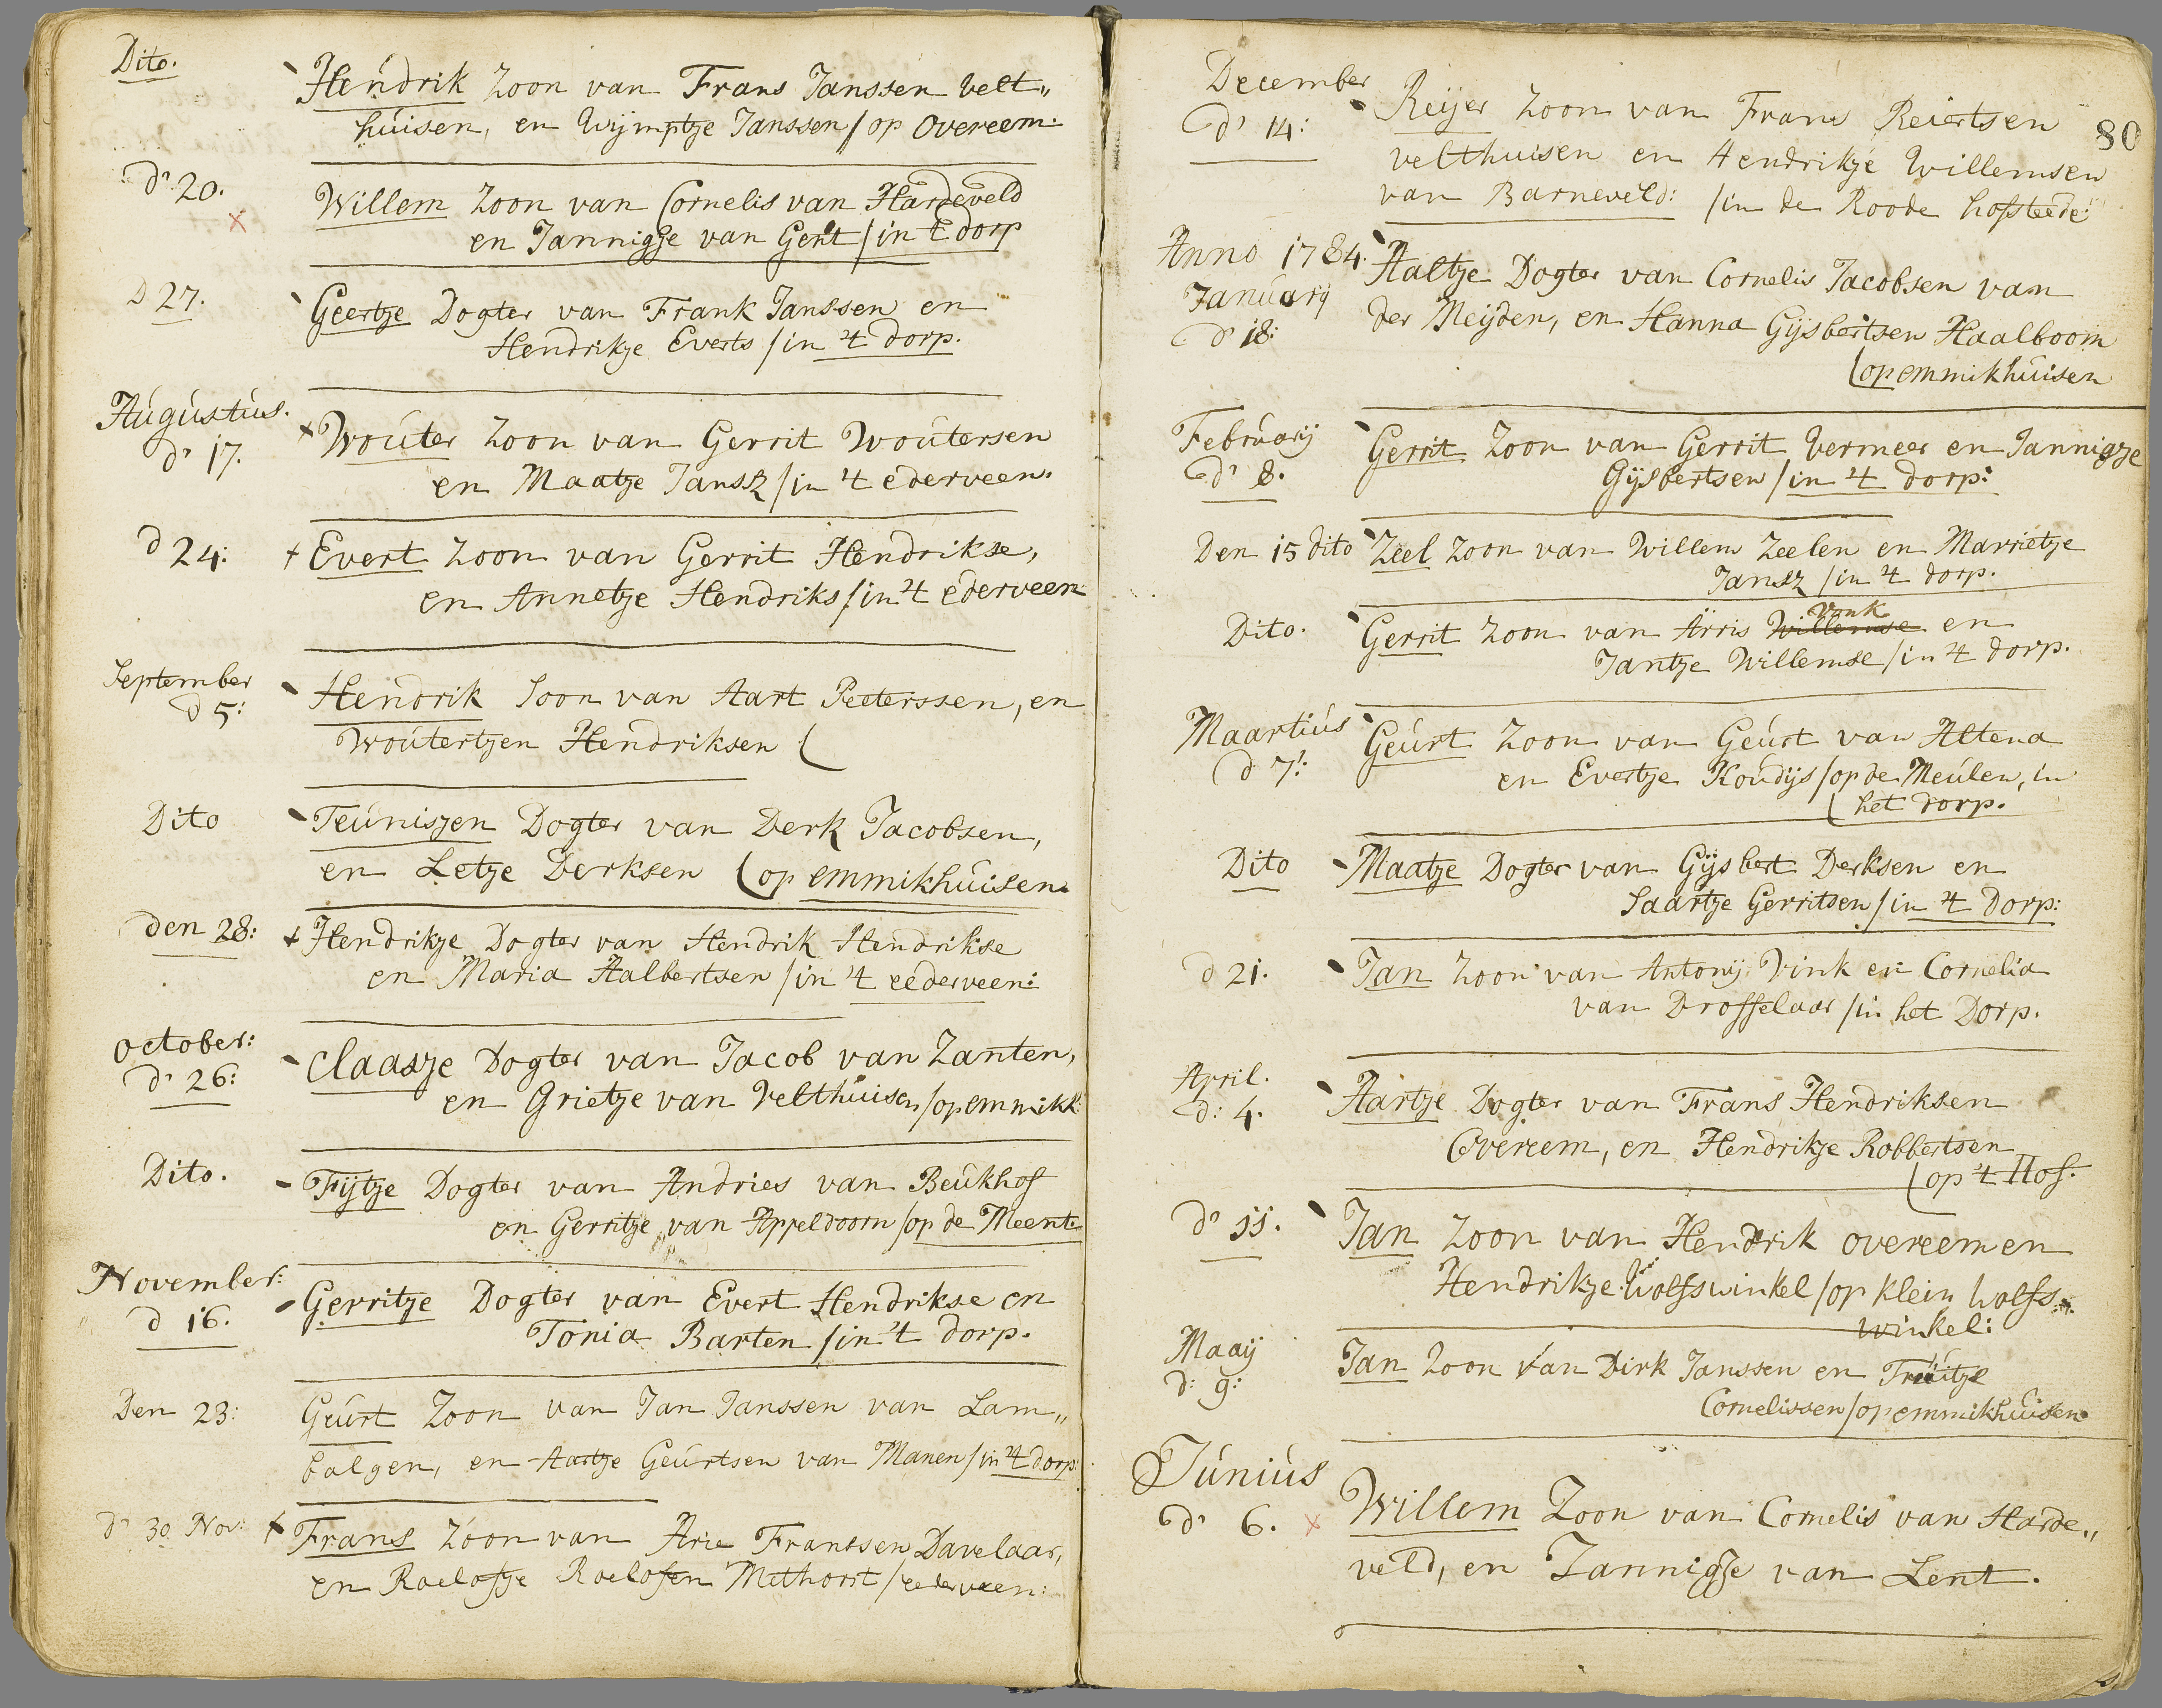 Dito.
Hendrik Zoon van Frans Janssen Velt„
húisen, en Wijmptje Janssen / op Overeem.
dn 20.
Willem Zoon van Cornelis van Hardeveld
en Jannigje van Gent / in 't dorp
D 27.
Geertje Dogter van Frank Janssen en
Hendrikje Everts / in 't dorp.
Aúgústús.
dn 17.
Woúter Zoon van Gerrit Woútersen
en Maatje Jansz / in 't ederveen.
d 24:
Evert Zoon van Gerrit Hendrikse,
en Annetje Hendriks / in 't ederveen
September
d 5:
Hendrik Soon van Aart Peeterssen, en
Woútertjen Hendriksen (
Dito
Teúnisjen Dogter van Derk Jacobsen,
en Letje Derksen (op emmikhúisen.
den 28:
Hendrikje Dogter van Hendrik Hendrikse
en Maria Aalbertsen / in 't eederveen:
october:
dn 26:
Claasje Dogter van Jacob van Zanten,
en Grietje van Velthúisen / op emmikh:
Dito.
Fijtje Dogter van Andries van Beúkhof
en Gerritje van Appeldoorn / op de Meente
November:
d 16.
Gerritje Dogter van Evert Hendrikse en
Tonia Barten / in 't dorp.
Den 23:
Geúrt Zoon van Jan Janssen van Lam„
balgen, en Aartje Geúrtsen van Manen / in 't dorp:
dn 30 Nov:
Frans Zoon van Arie Frantsen Davelaar,
en Roelofje Roelofsen Methorst / eederveen:
80
December
dn 14:
Reijer Zoon van Frans Reiertsen
velthuisen en Hendrikje Willemsen
van Barneveld: / in de Roode hofsteede:
Anno 1784.
Janúarij
dn 18:
Aaltje Dogter van Cornelis Jacobsen van
der Meijden, en Hanna Gijsbertsen Haalboom
(op emmikhúisen
Febrúarij
dn 8.
Gerrit Zoon van Gerrit Vermeer en Jannigje
Gijsbertsen / in 't dorp:
Den 15 dito
Zeel Zoon van Willem Zeelen en Marrietje
Jansz / in 't dorp.
Dito.
Vonk
Gerrit Zoon van Arris Willemse en
Jantje Willemse / in 't dorp.
Maartiús
d 7:
Geúrt Zoon van Geúrt van Altena
en Evertje Koúdijs / op de Meúlen, in
(het dorp.
Dito
Maatje Dogter van Gijsbert Derksen en
Saartje Gerritsen / in 't Dorp:
d 21.
Jan Zoon van Antonij Vink en Cornelia
van Drosselaar / in het Dorp.
April.
d: 4.
Aartje Dogter van Frans Hendriksen
Overeem, en Hendrikje Robbertsen
(op 't Hof.
dn 11.
Jan Zoon van Hendrik overeem en
Hendrikje Wolfswinkel / op klein Wolfs„
winkel:
Maaij
d: 9:
Jan Zoon van Dirk Janssen en Trúitje
Cornelissen / op emmikhúisen
Júniús
dn 6.
Willem Zoon van Cornelis van Harde„
veld, en Jannigje van Lent.